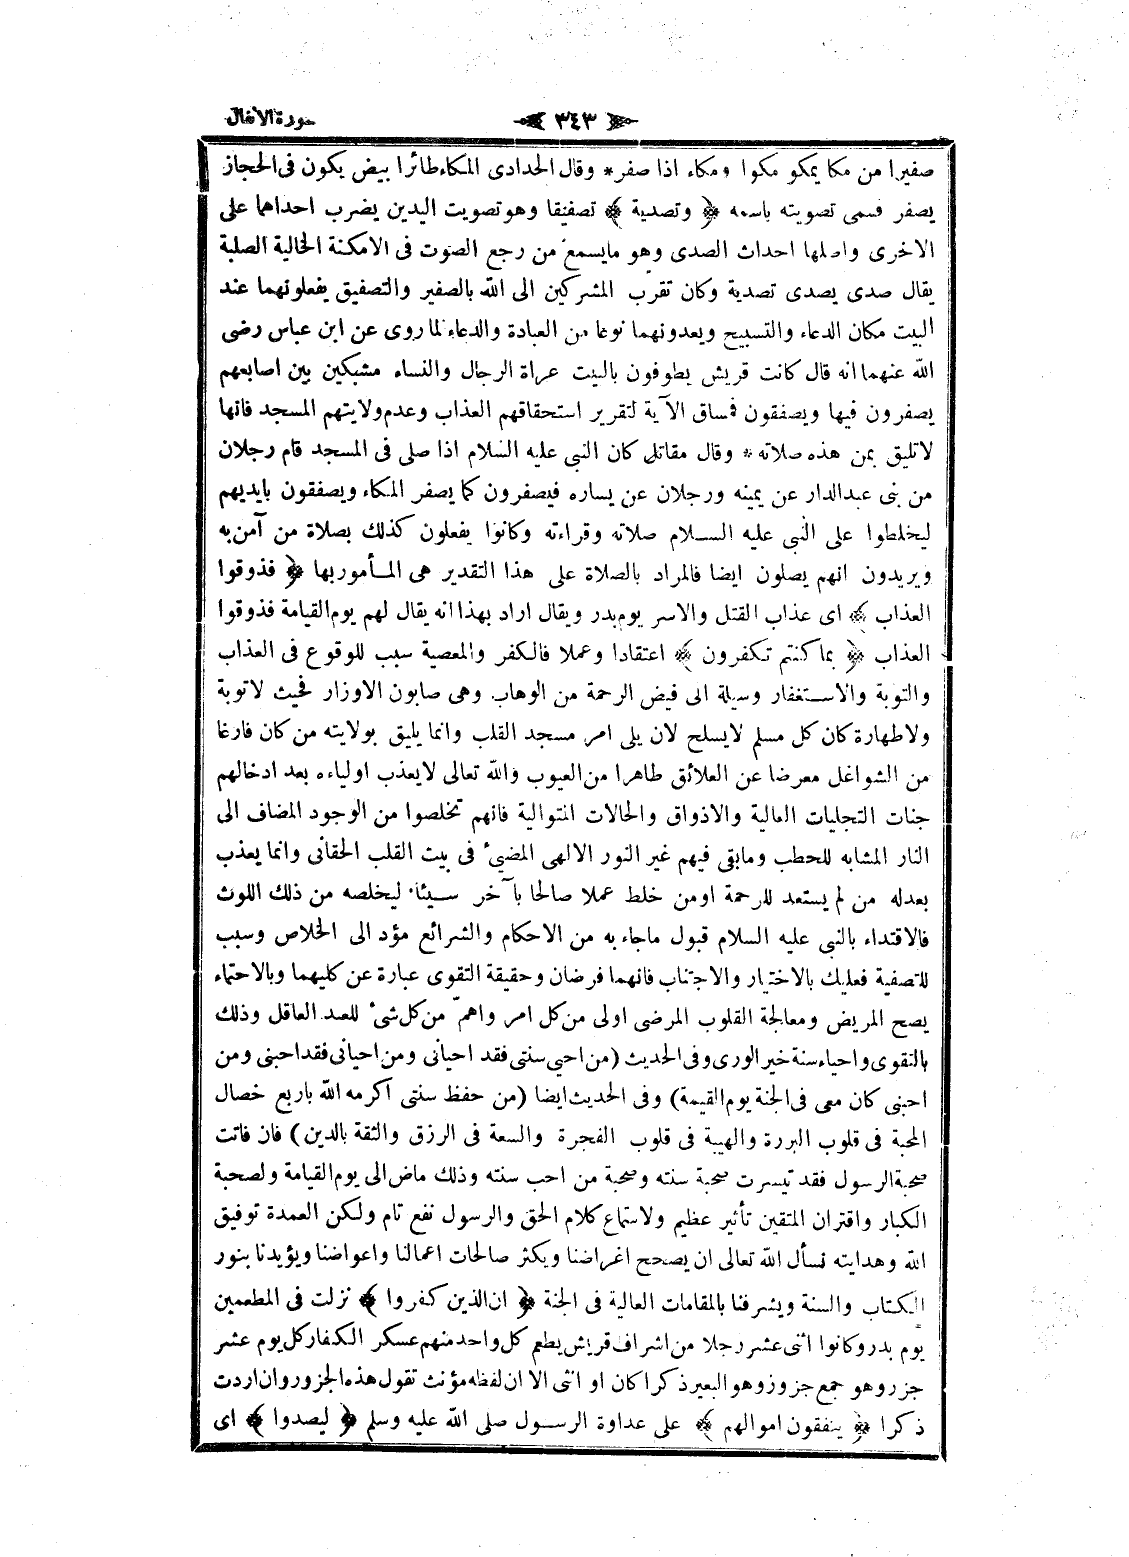 ﴿ ٣٤٣ ﴾ سورة الانفال
صفيرا من مكا يمكو مكوا ومكاء اذا صفر* وقال الحدادى المكاء طائرا بيض يكون فى الحجاز
يصفر فسمى تصويته باسمه ﴿ وتصدية ﴾ تصفيقا وهو تصويت اليدين يضرب احداهما على
الاخرى واصلها احداث الصدى وهو مايسمع من رجع الصوت فى الامكنة الخالية الصلبة
يقال صدى يصدى تصدية وكان تقرب المشركين الى الله بالصفير والتصفيق يفعلونهما عند
البيت مكان الدعاء والتسبيح ويعدونهما نوعا من العبادة والدعاء لما روى عن ابن عباس رضى
الله عنهما انه قال كانت قريش يطوفون بالبيت عراة الرجال والنساء مشبكين بين اصابعهم
يصفرون فيها ويصفقون فمساق الآية لتقرير استحقاقهم العذاب وعدم ولايتهم المسجد فانها
لاتليق بمن هذه صلاته* وقال مقاتل كان النبى عليه السلام اذا صلى فى المسجد قام رجلان
من بنى عبدالدار عن يمينه ورجلان عن يساره فيصفرون كما يصفر المكاء ويصفقون بايديهم
ليخلطوا على النبى عليه الســلام صلاته وقراءته وكانوا يفعلون كذلك بصلاة من آمن به
ويريدون انهم يصلون ايضا فالمراد بالصلاة على هذا التقدير هى المــأموربها ﴿ فذوقوا
العذاب ﴾ اى عذاب القتل والاسر يوم بدر ويقال اراد بهذا انه يقال لهم يوم القيامة فذوقوا
العذاب ﴿ بما كنتم تكفرون ﴾ اعتقادا وعملا فالكفر والمعصية سبب للوقوع فى العذاب
والتوبة والاســتغفار وسيلة الى فيض الرحمة من الوهاب وهى صابون الاوزار فحيث لاتوبة
ولاطهارة كان كل مسلم لايسلح لان يلى امر مسجد القلب وانما يليق بولايته من كان فارغا
من الشواغل معرضا عن العلائق طاهرا من العيوب والله تعالى لايعذب اولياءه بعد ادخالهم
جنات التجليات العالية والاذواق والحالات المتوالية فانهم تخلصوا من الوجود المضاف الى
النار المشابه للحطب ومابقى فيهم غير النور الالهى المضيئ فى بيت القلب الحقانى وانما يعذب
بعدله من لم يستعد للرحمة اومن خلط عملا صالحا بآخر ســيئا ليخلصه من ذلك اللوث
فالاقتداء بالنبى عليه السلام قبول ماجاء به من الاحكام والشرائع مؤد الى الخلاص وسبب
للتصفية فعليك بالاختيار والاجتناب فانهما فرضان وحقيقة التقوى عبارة عن كليهما وبالاحتماء
يصح المريض ومعالجة القلوب المرضى اولى من كل امر واهمّ من كل شئ للعبد العاقل وذلك
بالتقوى واحياء سنة خير الورى وفى الحديث (من احيى سنتى فقد احيانى ومن احيانى فقد احبنى ومن
احبنى كان معى فى الجنة يوم القيمة) وفى الحديث ايضا (من حفظ سنتى اكرمه الله باربع خصال
المحبة فى قلوب البررة والهيبة فى قلوب الفجرة والسعة فى الرزق والثقة بالدين) فان فاتت
صحبة الرسول فقد تيسرت صحبة سنته وصحبة من احب سنته وذلك ماض الى يوم القيامة ولصحبة
الكبار واقتران المتقين تأثير عظيم ولاستماع كلام الحق والرسول نفع تام ولكن العمدة توفيق
الله وهدايته نسأل الله تعالى ان يصحح اغراضنا ويكثر صالحات اعمالنا واعواضنا ويؤيدنا بنور
الكتاب والسنة ويشرفنا بالمقامات العالية فى الجنة ﴿ ان الذين كفروا ﴾ نزلت فى المطعمين
يوم بدر وكانوا اثنى عشر رجلا من اشراف قريش يطعم كل واحد منهم عسكر الكفار كل يوم عشر
جزر وهو جمع جزور وهو البعير ذكرا كان او انثى الا ان لفظه مؤنث تقول هذه الجزور وان اردت
ذكرا ﴿ ينفقون اموالهم ﴾ على عداوة الرســول صلى الله عليه وسلم ﴿ ليصدوا ﴾ اى